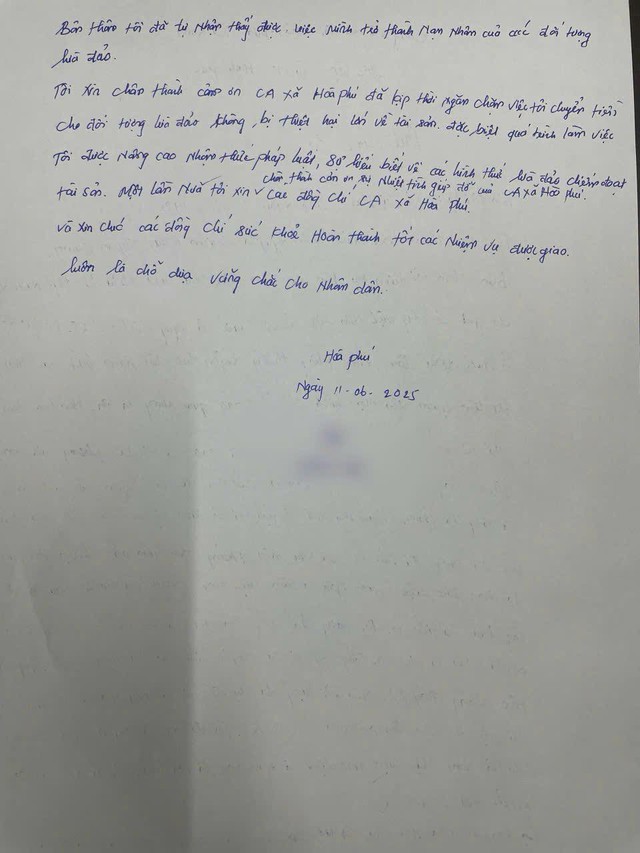 Bản thân tôi đã tự nhận thấy được việc mình trở thành nạn nhân của các đối tượng
lừa đảo.
Tôi xin chân thành cảm ơn CA xã Hòa phú đã kịp thời ngăn chặn việc tôi chuyển tiền
cho đối tượng lừa đảo không bị thiệt hại lớn về tài sản. đặc biệt quá trình làm việc
Tôi được nâng cao nhận thức pháp luật, sự hiểu biết về các hình thức lừa đảo chiếm đoạt
chân thành cảm ơn sự nhiệt tình giúp đỡ của CA xã Hòa phú.
tài sản. Một lần nữa tôi xin các đồng chí CA xã Hòa phú.
và xin chúc các đồng chí sức khỏe hoàn thành tốt các nhiệm vụ được giao.
luôn là chỗ dựa vững chắc cho nhân dân.
Hòa phú
Ngày 11-06-2025